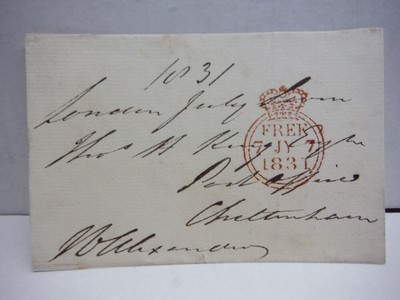 1831
London July Seven
Thos H King Esqre
Post Office
Cheltenham
W Alexander
FREE
7 JY 7
1831